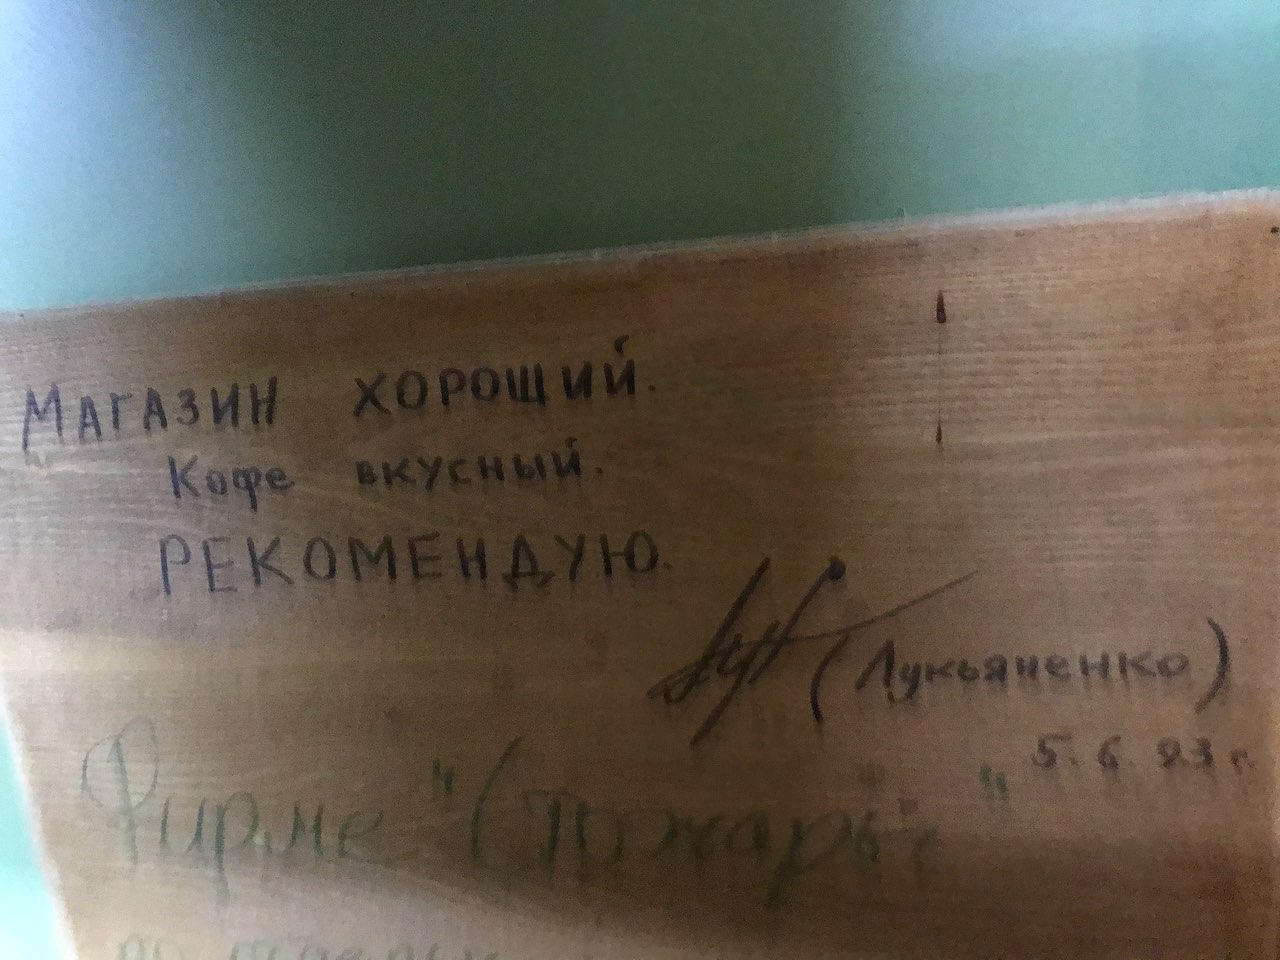 МАГАЗИН ХОРОЩИЙ.
Кофе вкусный.
РЕКОМЕНДУЮ.
(Лукьяненко)
5.6.93 г.
Фирме "Стожары"